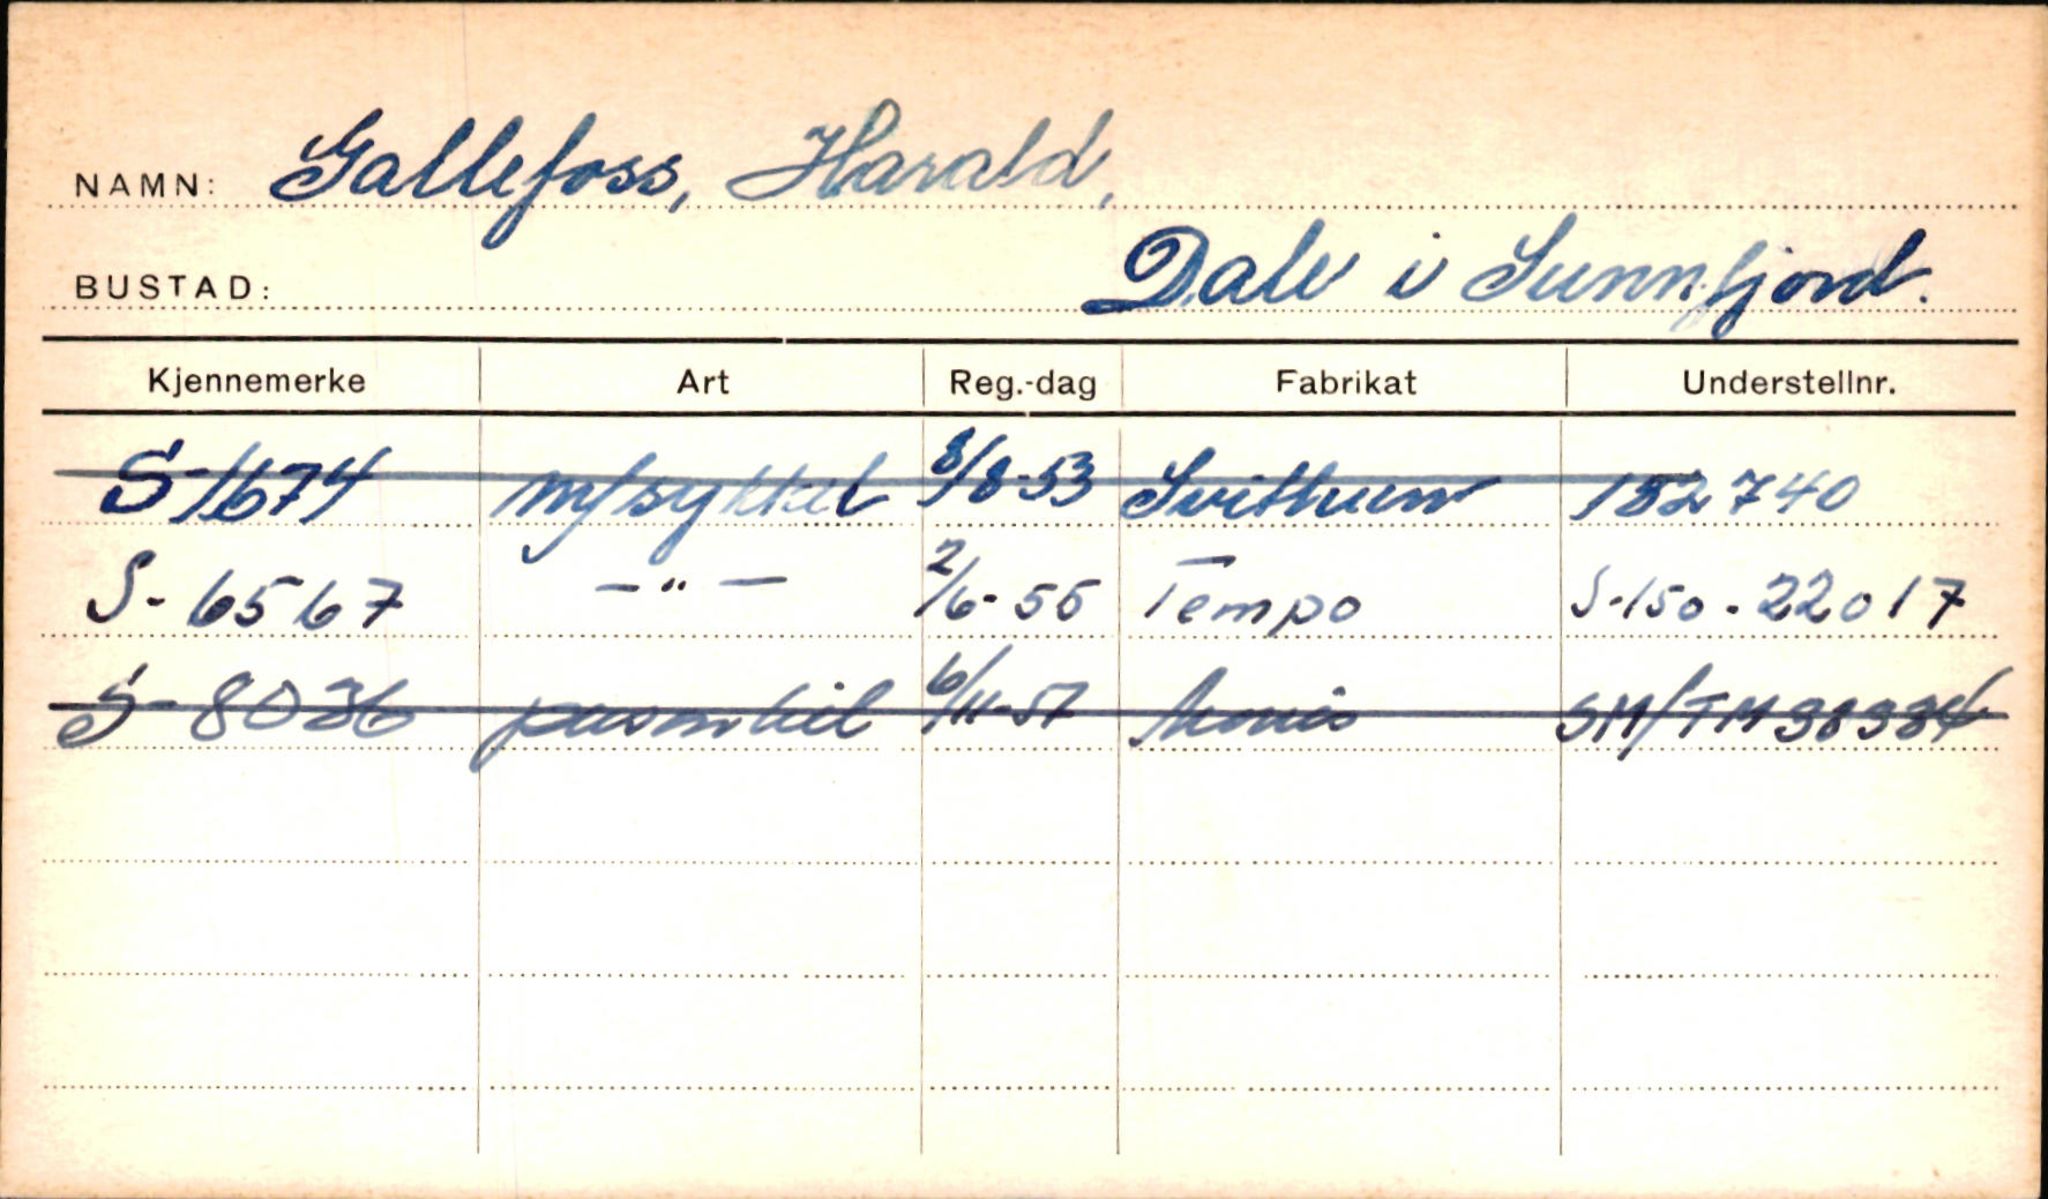 NAMN: Gallefoss, Harald,
BUSTAD: Dale i Sunnfjord.
Kjennemerke Art Reg.-dag Fabrikat Understellnr.
S-1674 m/sykkel 8/8-53 Svithun 182740
S-6567 -"- 2/6-55 Tempo S-150-22017
S-8036 personbil 6/11-57 Morris